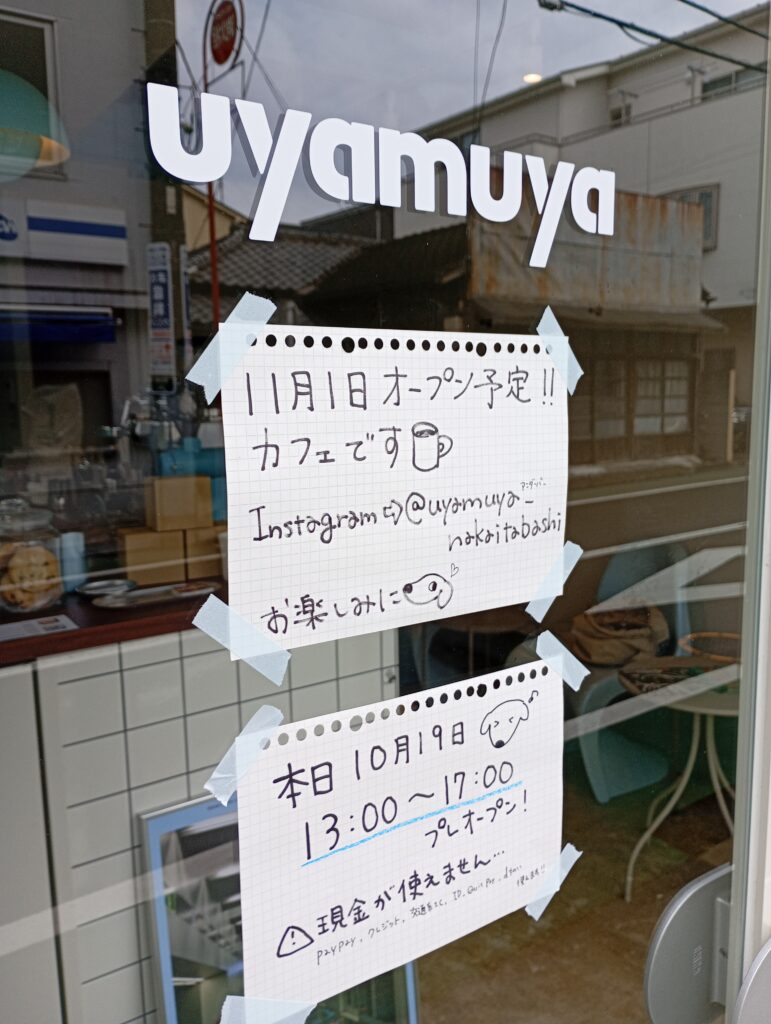 uyamuya
11月1日 オープン予定!!
カフェです
アンダーバー
Instagram⇨@uyamuya_
nakaitabashi
お楽しみに
本日 10月19日
13:00〜17:00
プレオープン!
⚠現金が使えません…
PayPay、クレジット、交通系IC、ID、QuicPay、d払い
使えます!!